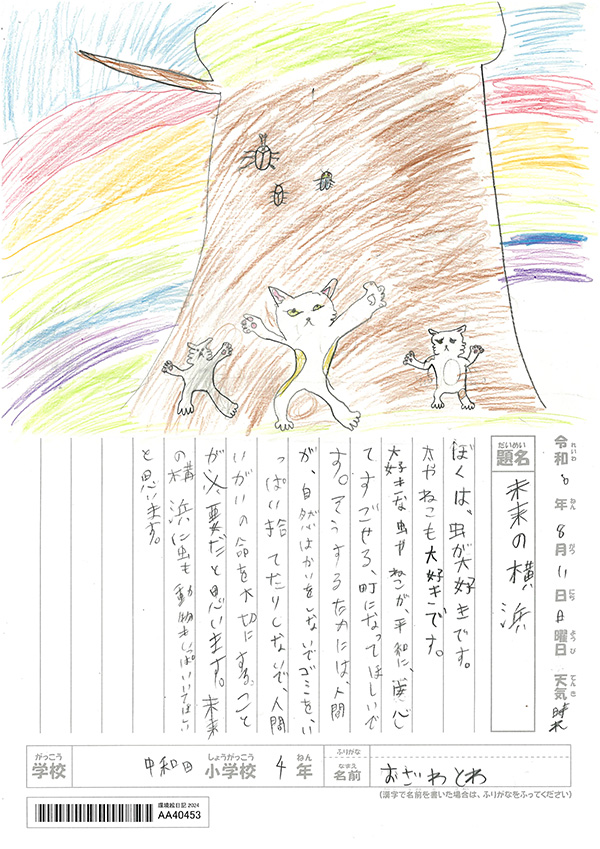 令和6年8月11日日曜日 天気 晴れ
れいわ ねん がつ にち ようび てんき
だいめい
題名 未来の横浜
ぼくは、虫が大好きです。
犬やねこも大好きです。
大好きな虫やねこが、平和に、安心し
てすごせる、町になってほしいで
す。そうするためには、人間
が、自然はかいをしないでゴミを、い
っぱい捨てたりしないで、人間
いがいの命を大切にする。こと
が必要だと思います。未来
の横浜に虫も動物もいっぱいいてほしい
と思います。
がっこう しょうがっこう ねん ふりがな
学校 中和田 小学校 4年 なまえ 名前 おざわとわ
(漢字で名前を書いた場合は、ふりがなをふってください)
環境絵日記 2024
AA40453